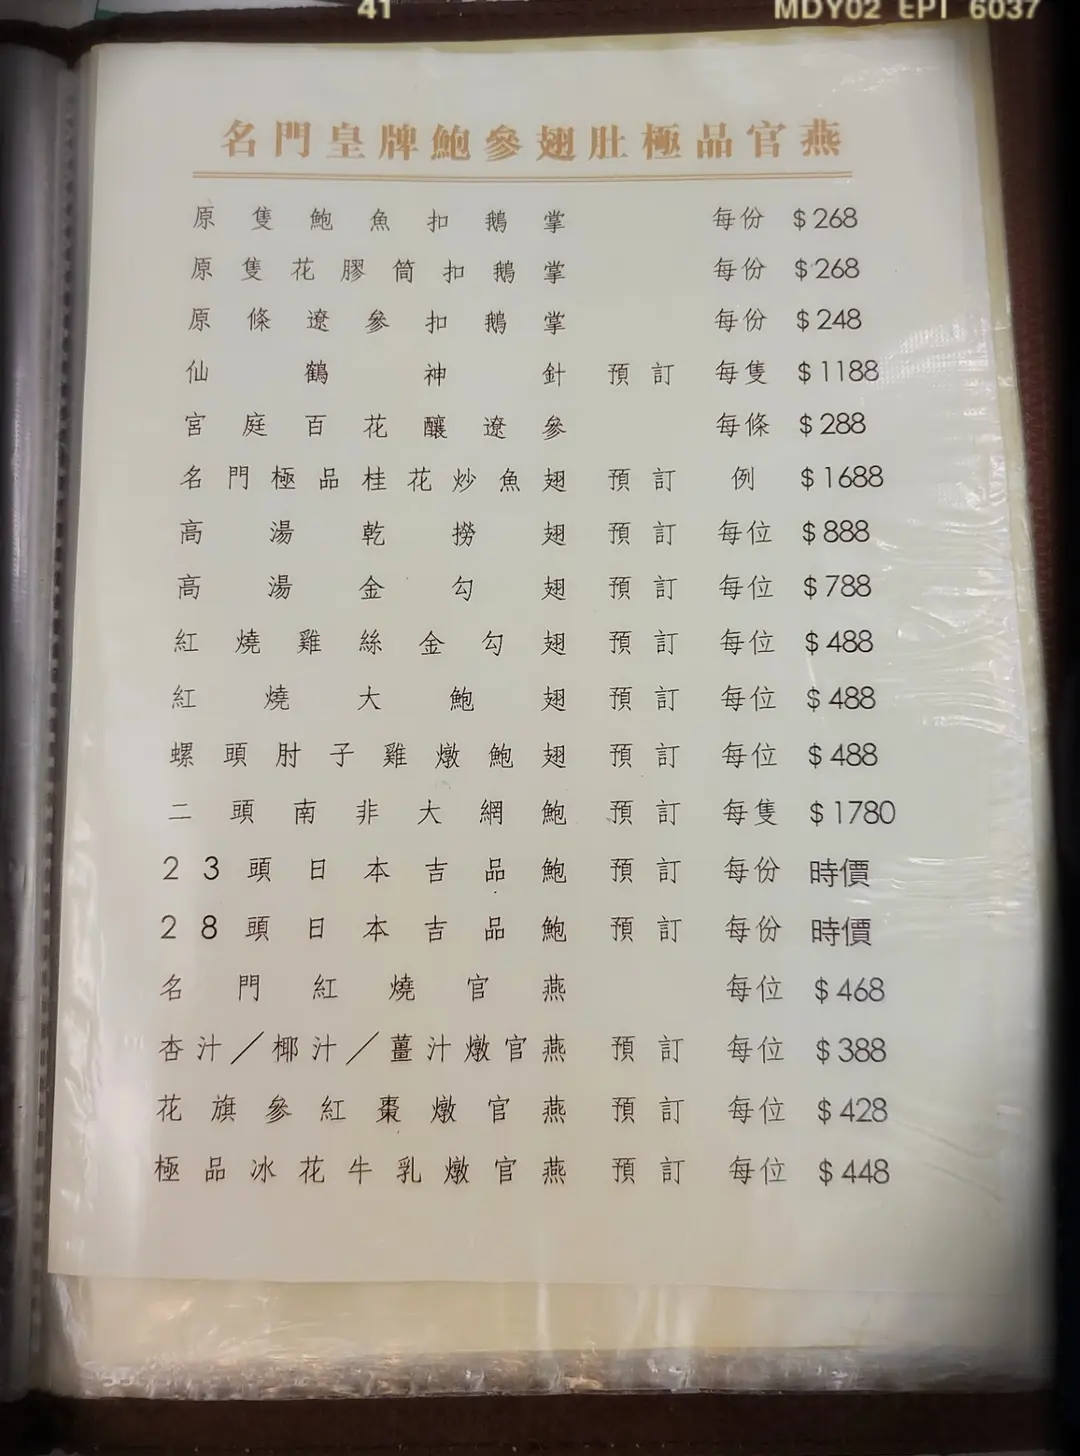 41 MDY02 EPI 6037
名門皇牌鮑參翅肚極品官燕
原隻鮑魚扣鵝掌 每份 $268
原隻花膠筒扣鵝掌 每份 $268
原條遼參扣鵝掌 每份 $248
仙鶴神針 預訂 每隻 $1188
宮庭百花釀遼參 每條 $288
名門極品桂花炒魚翅 預訂 例 $1688
高湯乾撈翅 預訂 每位 $888
高湯金勾翅 預訂 每位 $788
紅燒雞絲金勾翅 預訂 每位 $488
紅燒大鮑翅 預訂 每位 $488
螺頭肘子雞燉鮑翅 預訂 每位 $488
二頭南非大網鮑 預訂 每隻 $1780
23頭日本吉品鮑 預訂 每份 時價
28頭日本吉品鮑 預訂 每份 時價
名門紅燒官燕 每位 $468
杏汁/椰汁/薑汁燉官燕 預訂 每位 $388
花旗參紅棗燉官燕 預訂 每位 $428
極品冰花牛乳燉官燕 預訂 每位 $448